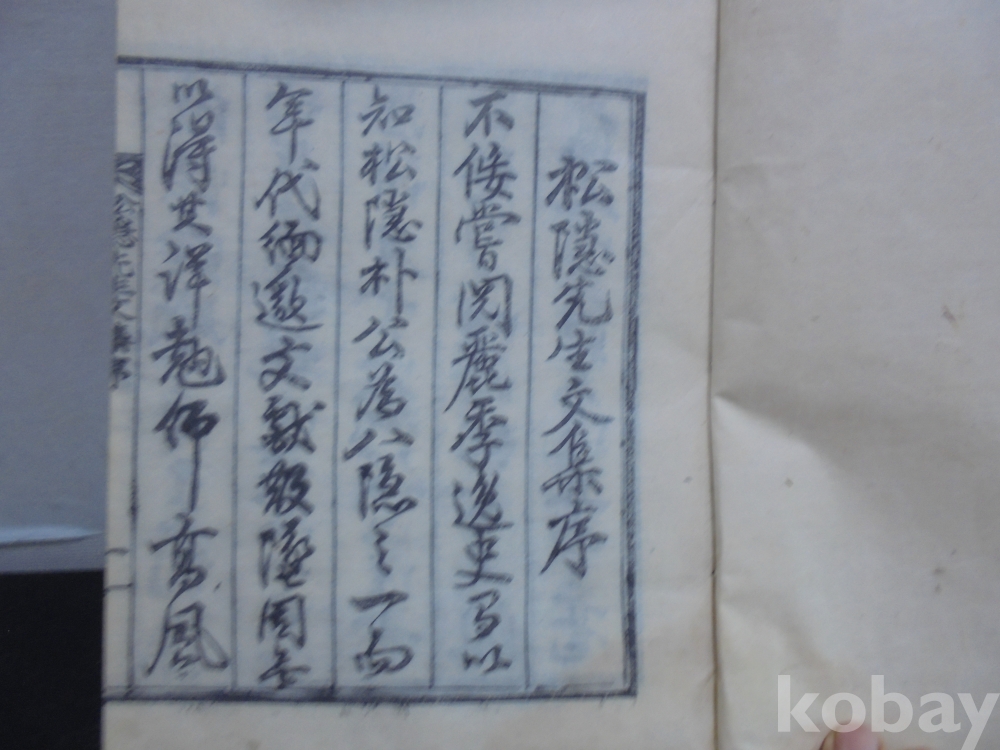 松隱先生文集序
不佞嘗閱麗季逸史得以
知松隱朴公爲八隱之一而
年代緬邈文獻散墜因無
以得其詳翹仰高風
kobay